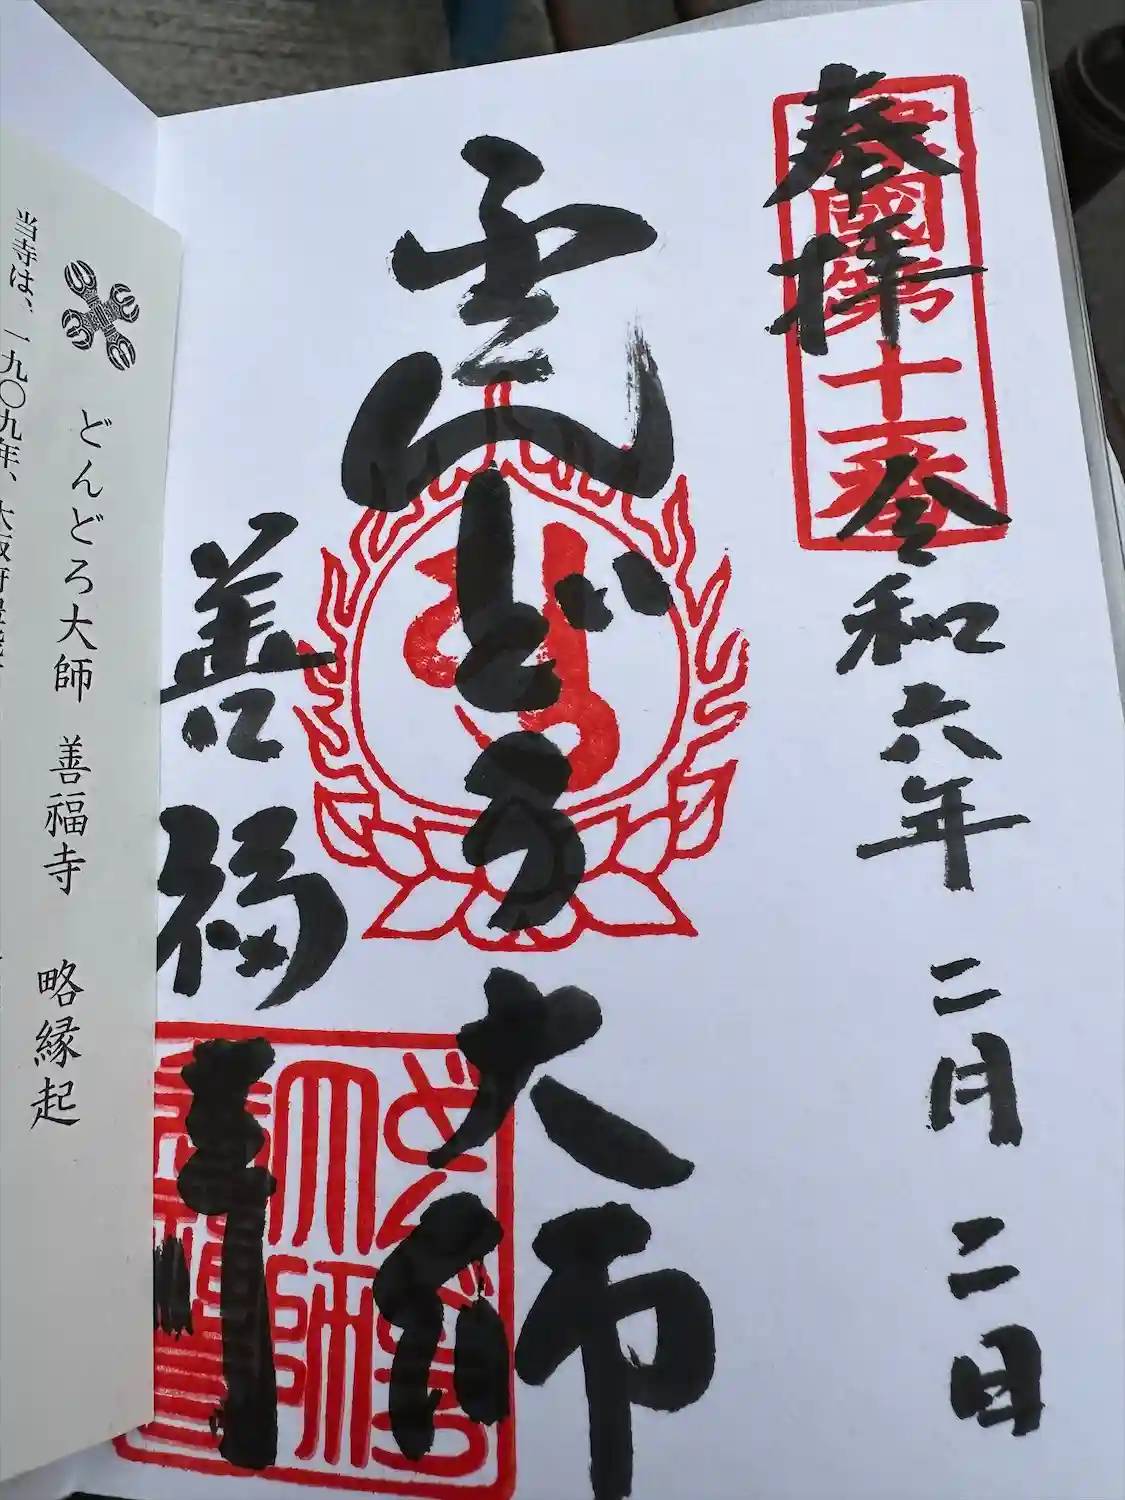 奉拝 令和六年二月二日
國第十一番
どんどろ大師
善福寺
どんどろ
大師
善福寺
どんどろ大師 善福寺 略縁起
当寺は、一九〇九年、大阪府豊